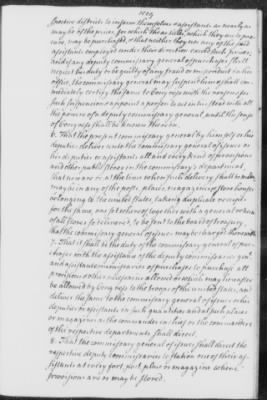 pective districts to inform themselves & assistants as nearly as
may be of the prices for which the articles which they are to pur-
chase, may be purchased, & that neither they nor any of the said
assistants employed under their direction exceed such prices,
neglect his duty or be guilty of any fraud or misconduct in his
office, the commissary general may suspend him & shall im-
mediately certify the same to Congress with the reasons for
such suspension & appoint a person to act in his stead with all
the powers of a deputy commissary general, until the sense
of Congress shall be known thereon.
6. That the present commissary general by himself or his
deputies deliver unto the commissary general of issues or
his deputies or assistants all and every kind of provisions
and other public stores in the commissary's department,
that now are or at the time when such delivery shall be made,
may be in any of the posts, places, magazines or store houses
belonging to the united states, taking duplicate receipts
for the same, one set whereof together with a general return
of all stores so delivered, to be sent to the board of treasury,
that the commissary general of issues may be charged therewith.
7. That it shall be the duty of the commissary general of pur-
chases with the assistance of the deputy commissaries gen.
and assistant commissaries of purchases to purchase all
provisions & other necessaries allowed or which may hereafter
be allowed by Congress to the troops of the united states, and
deliver the same to the commissary general of issues or his
deputies or assistants in such quantities and at such places
or magazines as the commander in chief or the commanders
of the respective departments shall direct.
8. That the commissary general of issues shall direct the
respective deputy commissaries to station one of their as-
sistants at every fort, post, place or magazine where
provisions are or may be stored.